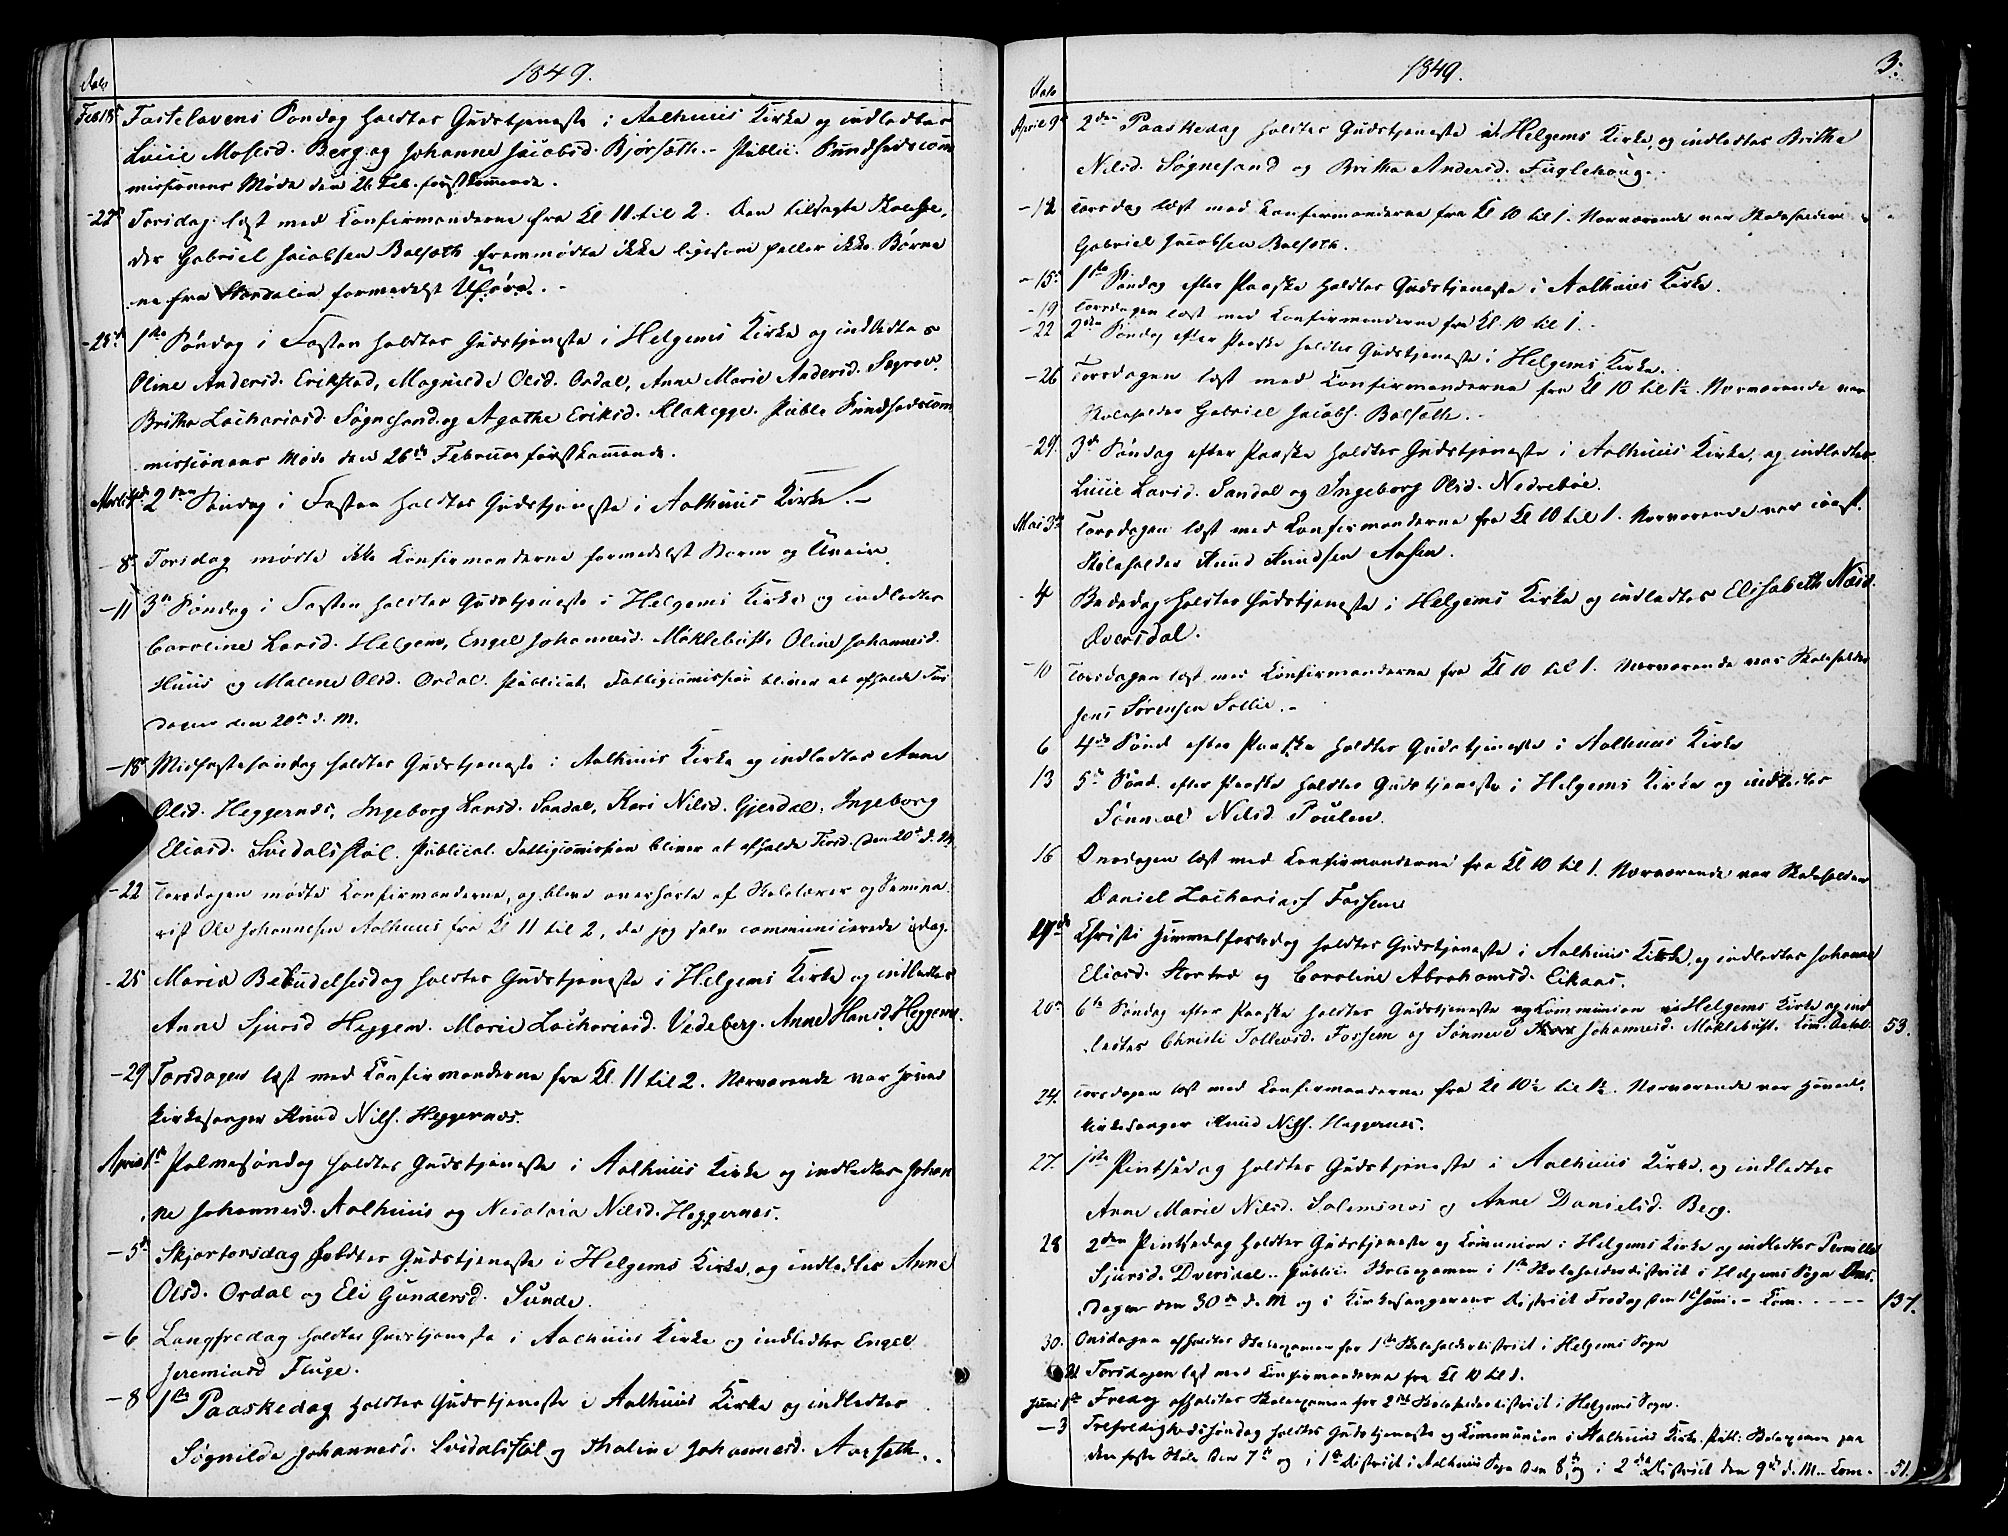 1849.
Dato
Feb 18de Fastelavens Søndag holdtes Gudstjeneste i Aalhuus Kirke og indledtes
Lucie Mosesd. Berg og Johanne Jacobsd. Bjørsæth. - Public. Sundhedscom
missionens Møde den 26 Feb. førstkommende.
- 22de Torsdag læst med Confirmanderne fra Kl 11 til 2. Den tilsagte Skolehol,
der Gabriel Jacobsen Bolsæth fremmødte ikke ligesom heller ikke Børne
ne fra Stardalen formedelst Uføre. -
- 25de 1ste Søndag i Fasten holdtes Gudstjeneste i Helgems Kirke og indledtes
Oline Andersd. Erikstad, Magnilde Olsd. Ordal, Anne Marie Andersd. Sægrov.
Britha Zachariasd. Søgnesand og Agathe Eriksd. Klakegge. Public Sundhedscom
missionens Møde den 26de Februar førstkommende.
Marts 4de 2den Søndag i Fasten holdtes Gudstjeneste i Aalhuus Kirke. -
- 8de Torsdag mødte ikke Confirmanderne formedelst Storm og Uveir.
- 11 3de Søndag i Fasten holdtes Gudstjeneste i Helgems Kirke og indledtes
Caroline Larsd. Helgem, Engel Johannesd. Møklebust, Oline Johannesd.
Huus og Malene Olsd. Ordal. Publicat. Fattigcommission bliver at afholde Tirs
dagen den 20de d. M.
- 18de Midfastesøndag holdtes Gudstjeneste i Aalhuus Kirke og indledtes Anne
Olsd. Heggernæs, Ingeborg Larsd. Sandal, Kari Nilsd. Gjerdal, Ingeborg
Eliasd. Svidalsstøl. Publicat. Fattigcommission bliver at afholde Tirsd. den 20de d. M.
- 22 Torsdagen mødte Confirmanderne, og blev overhørte af Skolelærer og Semina
rist Ole Johannesen Aalhuus fra Kl 11 til 2, da jeg selv communicerede idag.
- 25 Mariæ Bebudelsesdag holdtes Gudstjeneste i Helgems Kirke og indledtes
Anne Sjursd Heggem. Marie Zachariasd. Vedeberg. Anne Hansd. Heggem.
- 29 Torsdagen læst med Confirmanderne fra Kl. 11 til 2. Nærværende var Hoved
kirkesanger Knud Nilss. Heggernæs.
April 1ste Palmesøndag holdtes Gudstjeneste i Aalhuus Kirke og indledtes Johan
ne Johannesd. Aalhuus og Nicolaia Nilsd. Heggernæs.
- 5de Skjærtorsdag holdtes Gudstjeneste i Helgems Kirke, og indledtes Anne
Olsd. Ordal og Eli Gundersd. Sunde.
- 6 Langfredag holdtes Gudstjeneste i Aalhuus Kirke og indledtes Engel
Jeremiasd Fluge.
- 8 1ste Paaskedag holdtes Gudstjeneste i Aalhuus Kirke og indledtes
Søgnilde Johannesd. Svidalsstøl og Thaline Johannesd. Aarsæth.
1849.
3.
Dato
April 9de 2den Paaskedag holdtes Gudstjeneste i Helgems Kirke, og indledtes Britha
Nilsd. Søgnesand og Britha Andersd. Fuglehoug.
- 12 Torsdag læst med Confirmanderne fra Kl 10 til 1. Nærværende var Skoleholder
Gabriel Jacobsen Bolsæth.
- 15de 1ste Søndag efter Paaske holdtes Gudstjeneste i Aalhuus Kirke.
- 19 Torsdagen læst med Confirmanderne fra Kl. 10 til 1.
- 22 2den Søndag efter Paaske holdtes Gudstjeneste i Helgems Kirke.
- 26 Torsdagen læst med Confirmanderne fra Kl 10 til 1½. Nærværende var
Skoleholder Gabriel Jacobs. Bolsæth.
- 29. 3de Søndag efter Paaske holdtes Gudstjeneste i Aalhuus Kirke, og indledtes
Lucie Larsd. Sandal og Ingeborg Olsd. Nedrebøe.
Mai 3de Torsdagen læst med Confirmanderne fra Kl 10 til 1. Nærværende var
Skoleholder Knud Knudsen Aasen.
- 4 Bededag holdtes Gudstjeneste i Helgems Kirke og indledtes Elisabeth
Dversdal.
- 10 Torsdagen læst med Confirmanderne fra Kl 10 til 1. Nærværende var Skoleholder
Jens Sørensen Sollie. -
6 4de Sønd efter Paaske holdtes Gudstjeneste i Aalhuus Kirke
13 5te Sønd. efter Paaske holdtes Gudstjeneste i Helgems Kirke og indledtes
Sønneve Nilsd. Poulen.
16 Onsdagen læst med Confirmanderne fra Kl 10 til 1. Nærværende var Skoleholder
Daniel Zachariass Fossem
17de Christi Himmelfartsdag holdtes Gudstjeneste i Aalhuus Kirke, og indledtes Johanne
Eliasd. og Caroline Abrahamsd. Eikaas.
20de 6te Søndag efter Paaske holdtes Gudstjeneste og Communion i Helgems Kirke og ind
ledtes Christi Tollevsd. Fossem og Sønneve Johannesd. Møklebust. Com. Antal 53.
24. Torsdagen læst med Confirmanderne fra Kl 10½ til 1½. Nærværende var Hoved-
kirkesanger Knud Nilss. Heggernæs.
27. 1ste Pintsedag holdtes Gudstjeneste i Aalhuus Kirke, og indledtes
Anne Marie Nilsd. og Anne Danielsd. Berg.
28 2den Pintsedag holdtes Gudstjeneste og Communion i Helgems Kirke og indledtes Pernille
Sjursd. Dversdal. Public. Skoleexamen i 1ste Skoleholderdistrict i Helgems Sogn Ons
dagen den 30de d. M og i Kirkesangerens District Fredag den 1ste Juni. - Com. - - - - - 137.
30. Onsdagen afholdtes Skoleexamen for 1ste Skoleholderdistrict i Helgems Sogn
31 Torsdagen læst med Confirmanderne fra Kl 10 til 1.
Juni 1ste Fredag afholdtes Skoleexamen for 2det Skoleholderdistrict i Helgems Sogn.
- 3 Trefoldighedssøndag holdtes Gudstjeneste og Communion i Aalhuus Kirke. Publ: Skoleexamen paa
den faste Skole den 7de og i 1ste District i Aalhuus Sogn den 8de og i 2det District den 9de d. M. - Com - 51.